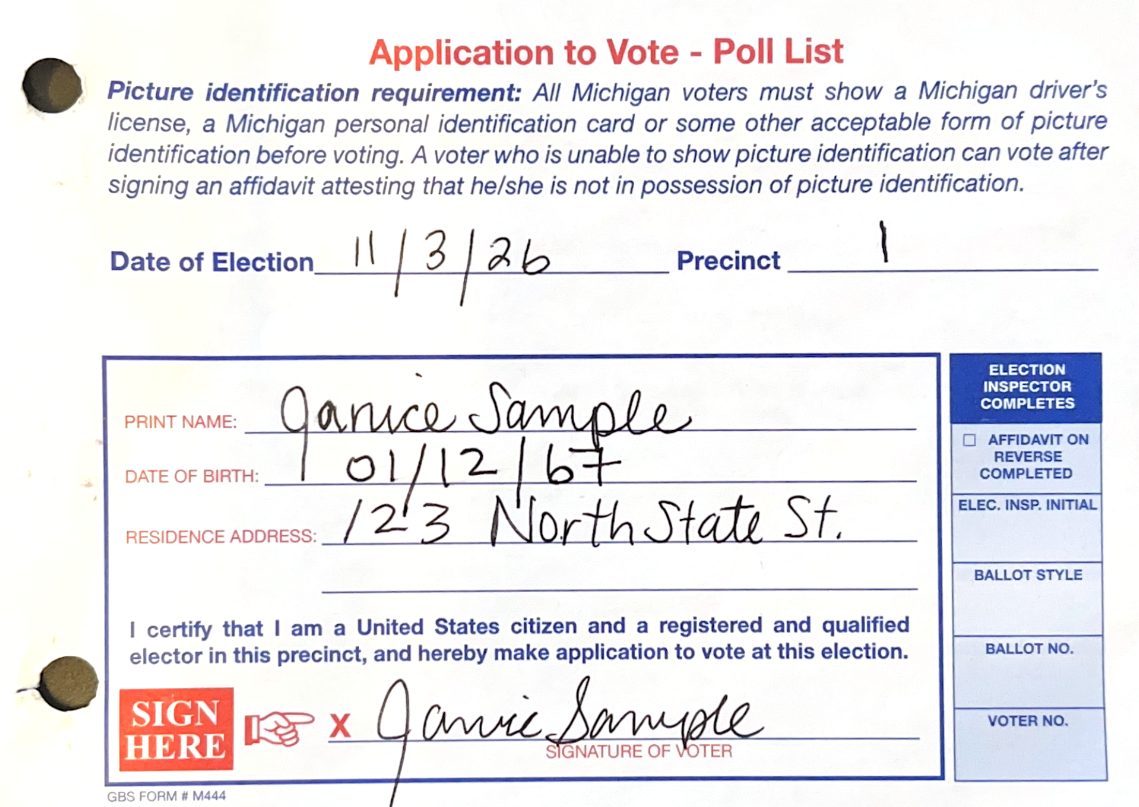 Application to Vote - Poll List
Picture identification requirement: All Michigan voters must show a Michigan driver's
license, a Michigan personal identification card or some other acceptable form of picture
identification before voting. A voter who is unable to show picture identification can vote after
signing an affidavit attesting that he/she is not in possession of picture identification.
Date of Election 11/3/26 Precinct 1
PRINT NAME: Janice Sample
DATE OF BIRTH: 01/12/67
RESIDENCE ADDRESS: 123 North State St.
I certify that I am a United States citizen and a registered and qualified
elector in this precinct, and hereby make application to vote at this election.
SIGN
HERE
X Janice Sample
SIGNATURE OF VOTER
ELECTION
INSPECTOR
COMPLETES
☐ AFFIDAVIT ON
REVERSE
COMPLETED
ELEC. INSP. INITIAL
BALLOT STYLE
BALLOT NO.
VOTER NO.
GBS FORM # M444